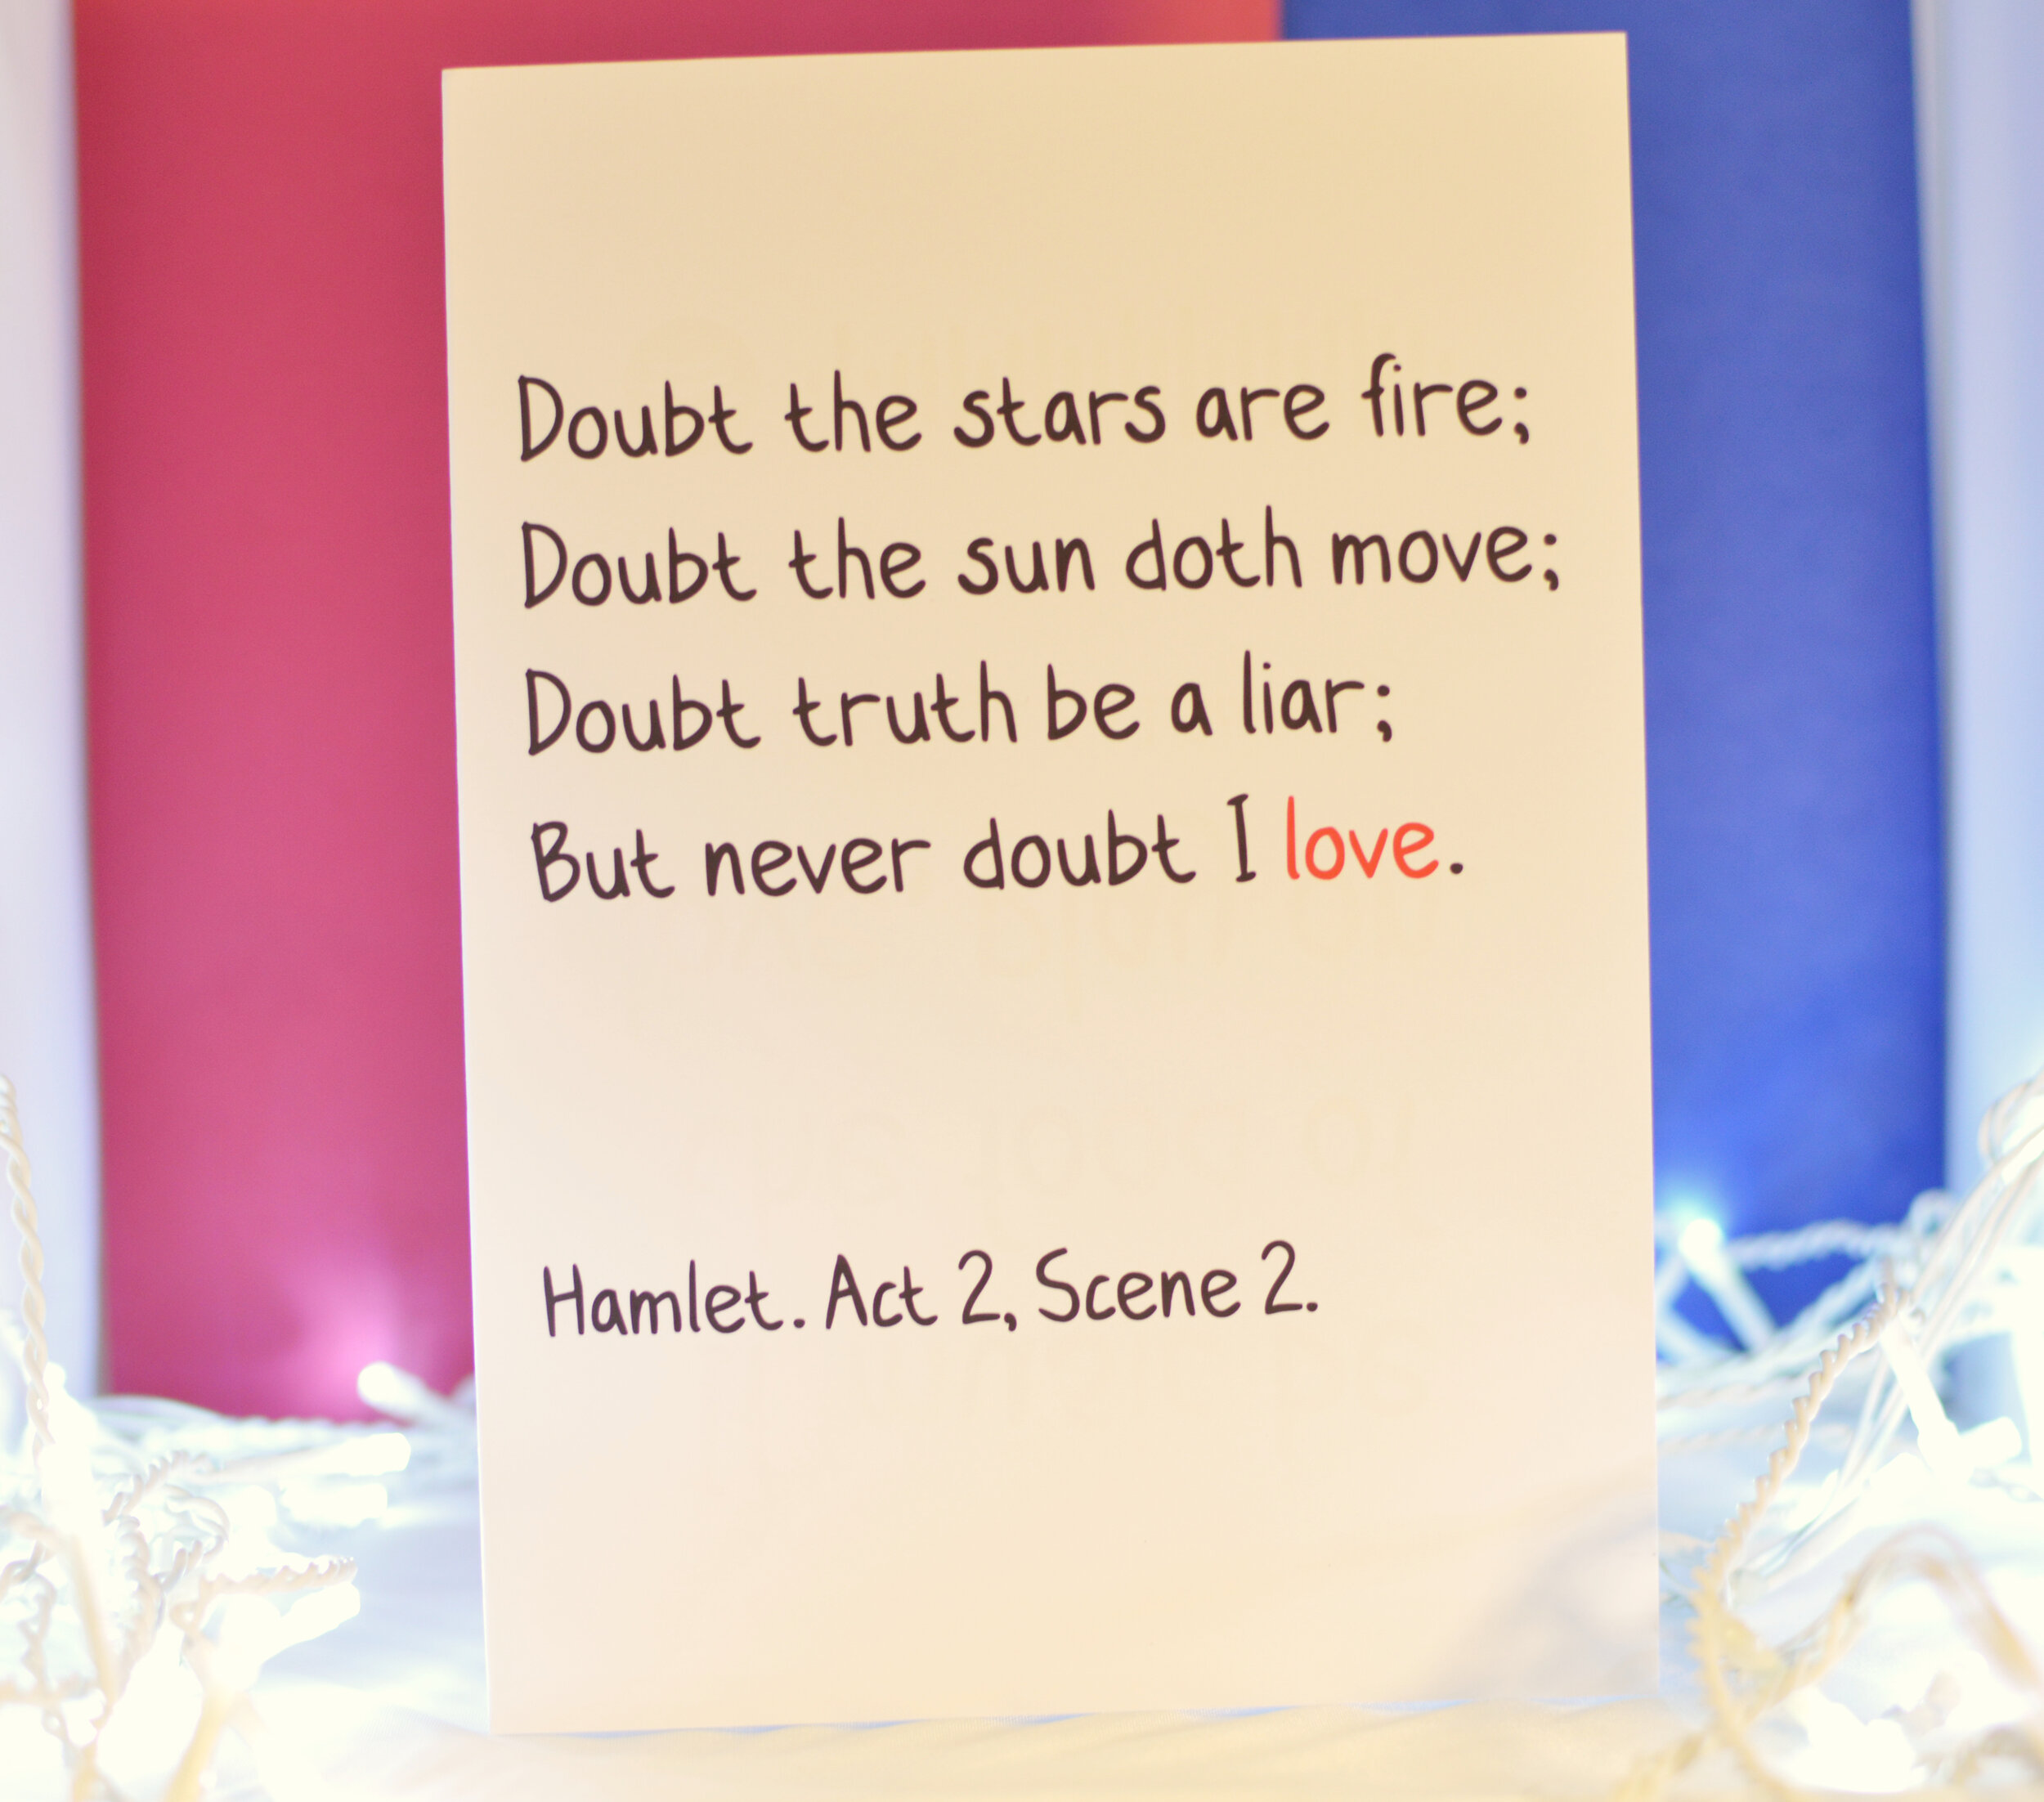 Doubt the stars are fire;
Doubt the sun doth move;
Doubt truth be a liar;
But never doubt I love.
Hamlet. Act 2, Scene 2.